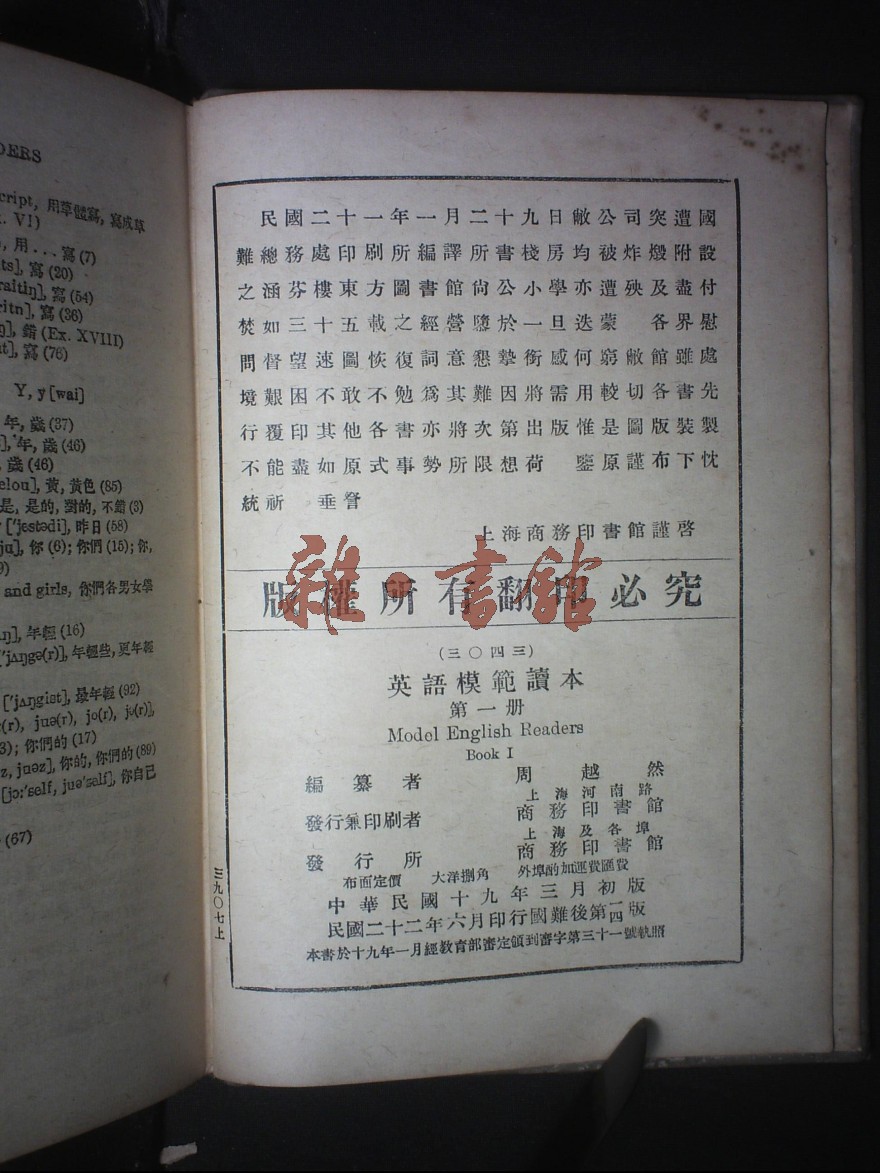 DERS
cript, 用草體寫, 寫成草
. VI)
, 用...寫 (7)
ts], 寫 (20)
raitiŋ], 寫 (54)
ritn], 寫 (36)
ŋ], 錯 (Ex. XVIII)
t], 寫 (76)
Y, y [wai]
年, 歲 (37)
], 年, 歲 (46)
歲 (46)
elou], 黃, 黃色 (85)
是, 是的, 對的, 不錯 (3)
['jestədi], 昨日 (58)
ju], 你 (6); 你們 (15); 你,
9)
and girls, 你們各男女學
ŋ], 年輕 (16)
['jʌŋgə(r)], 年輕些, 更年輕
['jʌŋgist], 最年輕 (92)
(r), juə(r), jo(r), jʊ(r)],
3); 你們的 (17)
z, juəz], 你的, 你們的 (89)
[jɔ:'self, juə'self], 你自己
(67)
民國二十一年一月二十九日敝公司突遭國
難總務處印刷所編譯所書棧房均被炸燬附設
之涵芬樓東方圖書館尙公小學亦遭殃及盡付
焚如三十五載之經營隳於一旦迭蒙 各界慰
問督望速圖恢復詞意懇摯銜感何窮敝館雖處
境艱困不敢不勉爲其難因將需用較切各書先
行覆印其他各書亦將次第出版惟是圖版裝製
不能盡如原式事勢所限想荷 鑒原謹布下忱
統祈 垂詧
上海商務印書館謹啓
雜·書館
版權所有翻印必究
(三〇四三)
英語模範讀本
第一册
Model English Readers
Book I
編纂者 周越然
上海河南路
發行兼印刷者 商務印書館
上海及各埠
發行所 商務印書館
布面定價 大洋捌角 外埠酌加運費匯費
中華民國十九年三月初版
民國二十二年六月印行國難後第二四版
本書於十九年一月經教育部審定領到審字第三十一號執照
三九〇七上